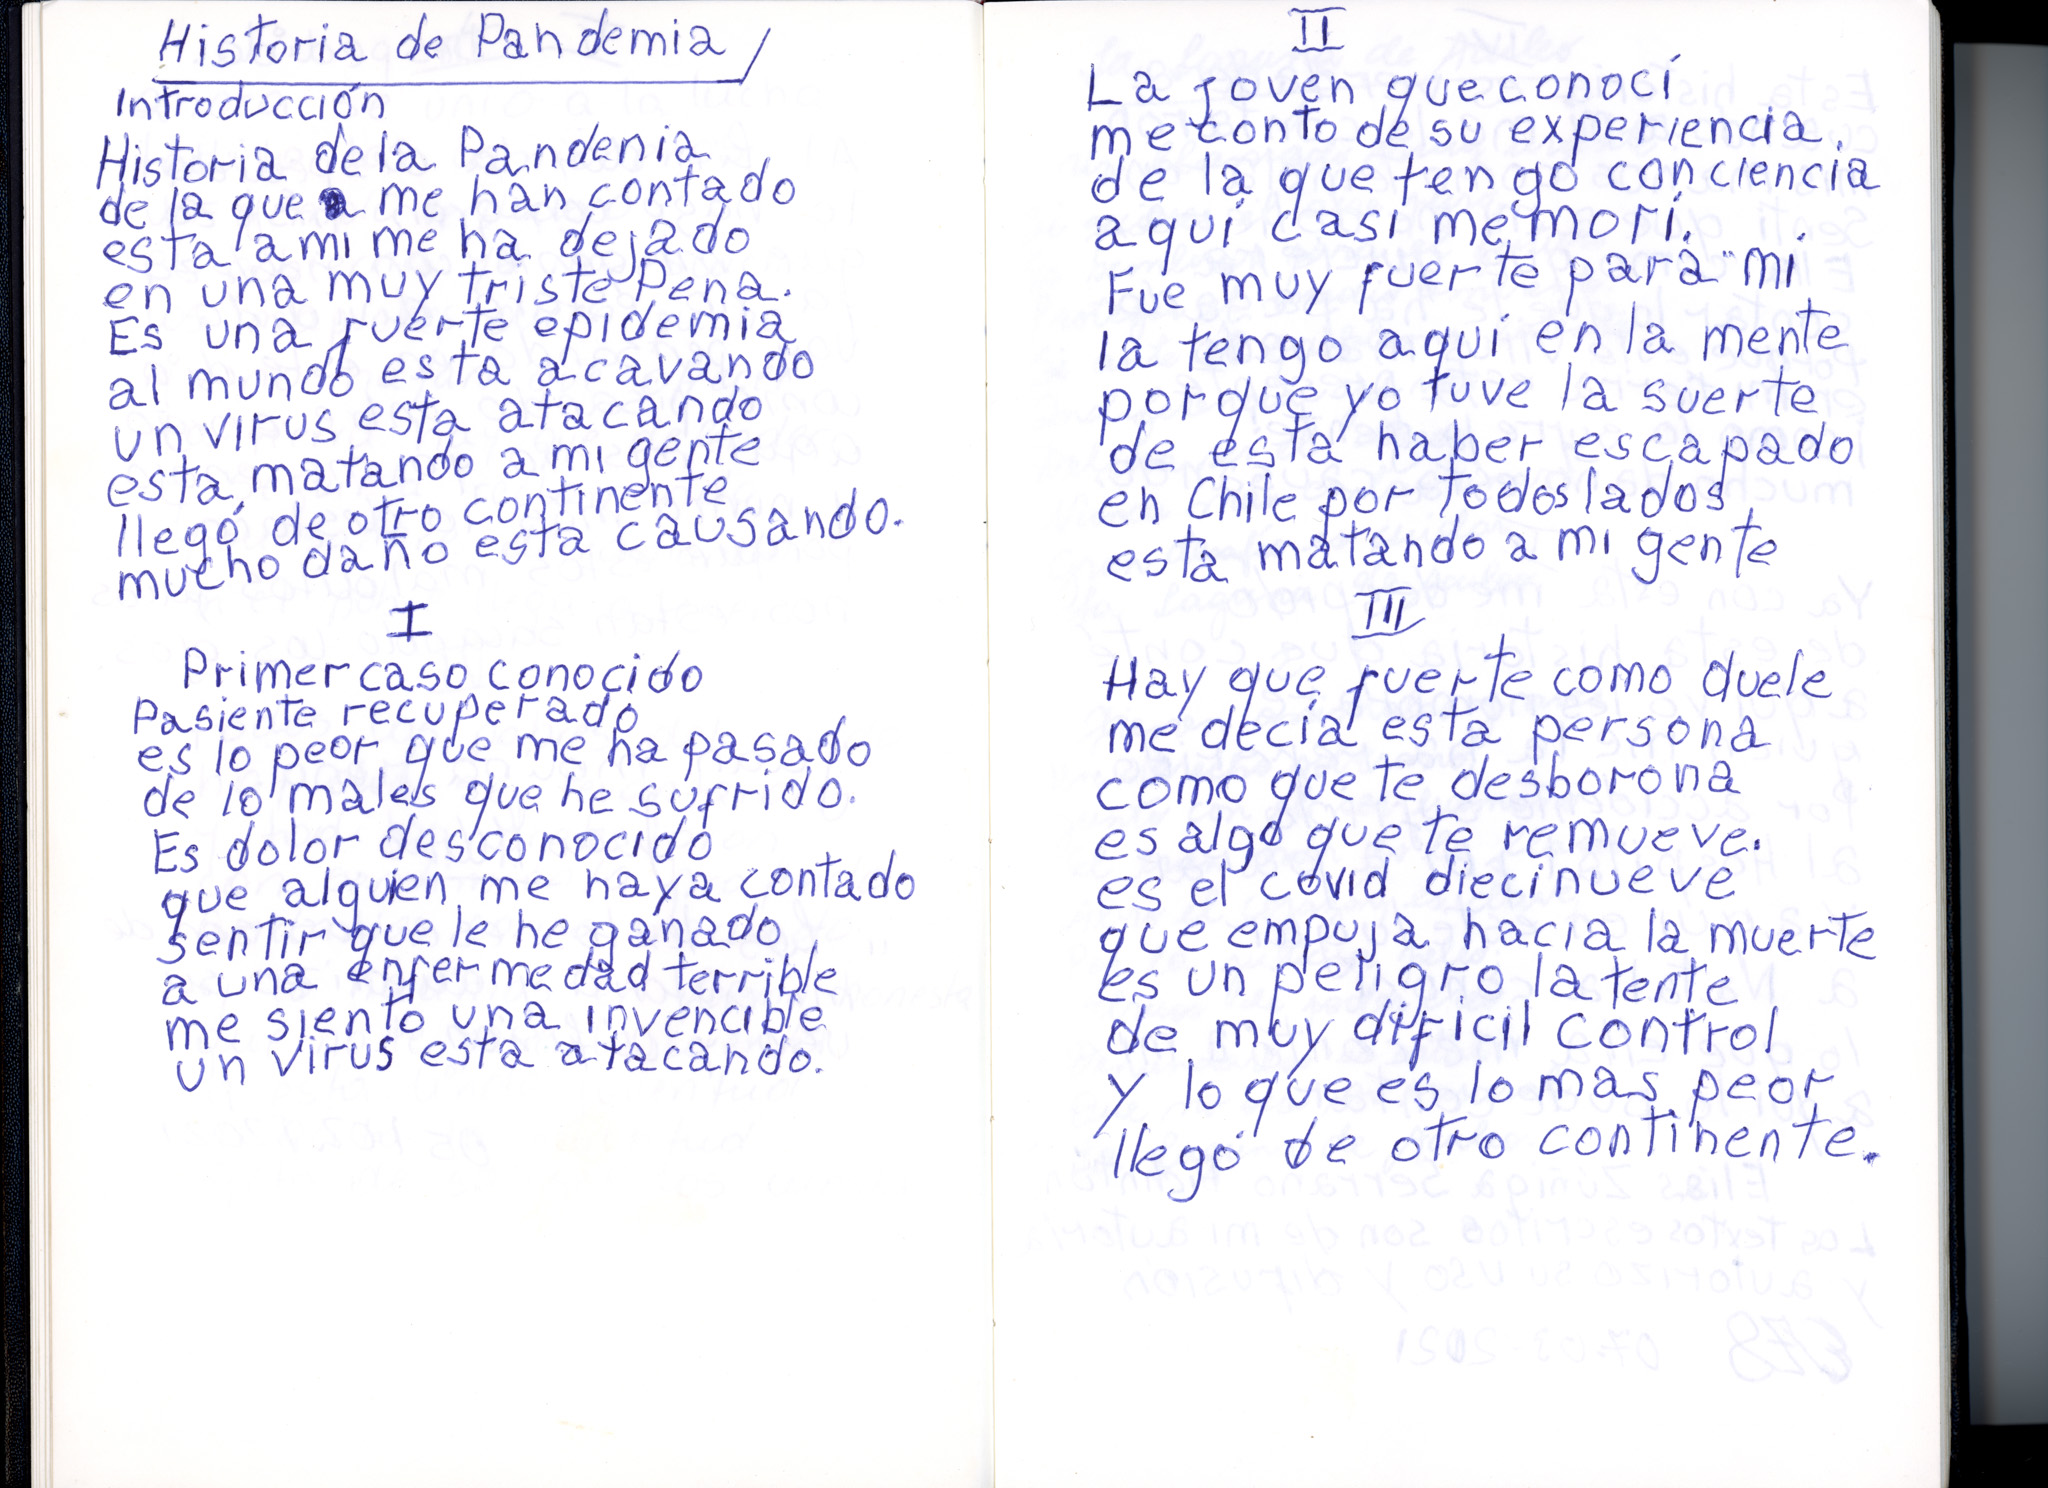 Historia de Pandemia
Introducción
Historia de la Pandenia
de la que me han contado
esta a mi me ha dejado
en una muy triste Pena.
Es una fuerte epidemia
al mundo esta acavando
un virus esta atacando
esta matando a mi gente
llegó de otro continente
mucho daño esta causando.
I
Primer caso conocido
Pasiente recuperado
es lo peor que me ha pasado
de lo males que he sufrido.
Es dolor desconocido
que alguien me haya contado
sentir que le he ganado
a una enfermedad terrible
me siento una invencible
un virus esta atacando.
II
La joven que conocí
me conto de su experiencia.
de la que tengo conciencia
aquí casi me morí.
Fue muy fuerte para mi
la tengo aquí en la mente
porque yo tuve la suerte
de esta haber escapado
en Chile por todos lados
esta matando a mi gente
III
Hay que fuerte como duele
me decía esta persona
como que te desborona
es algo que te remueve.
es el covid diecinueve
que empuja hacia la muerte
es un peligro latente
de muy dificil control
y lo que es lo mas peor
llegó de otro continente.